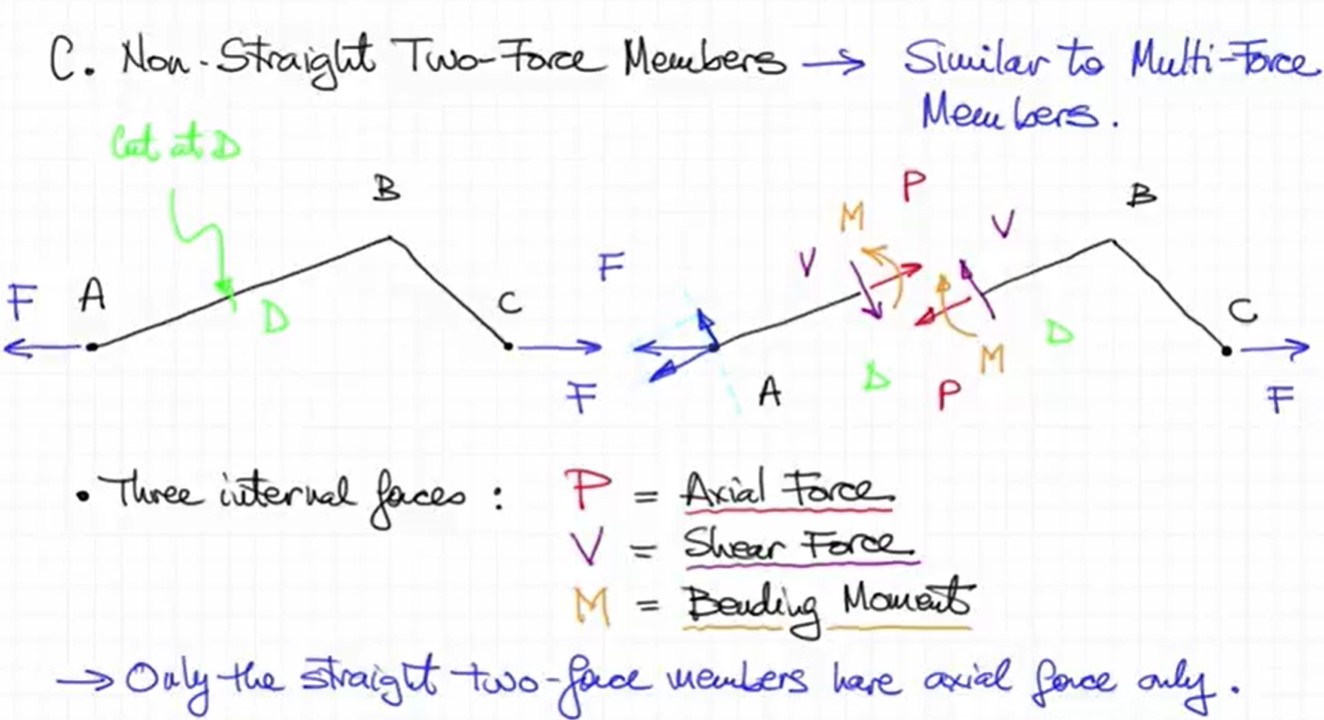 C. Non-Straight Two-Force Members → Similar to Multi-Force
Members.
Cut at D
B
F A
D
C
F
F
M P
V V
B
C
A
D
P
M
D
F
• Three internal forces : P = Axial Force
V = Shear Force
M = Bending Moment
→ Only the straight two-force members have axial force only.